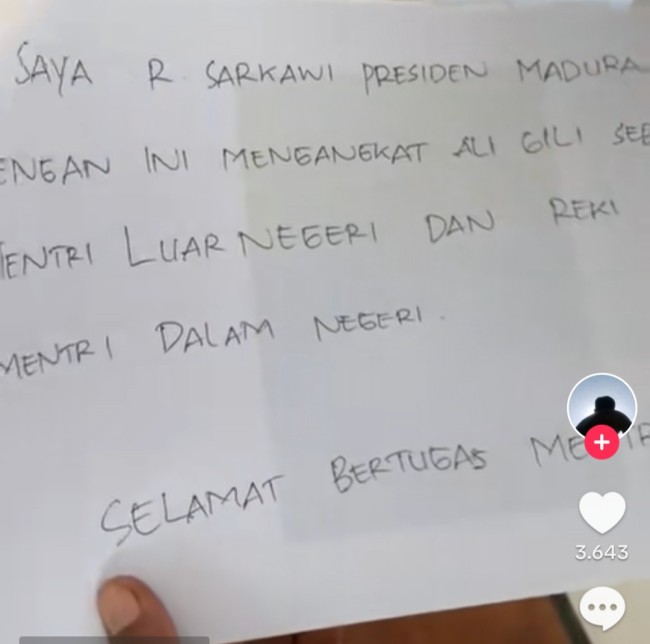 SAYA R. SARKAWI PRESIDEN MADURA
ENGAN INI MENGANGKAT ALI GILI SEB
ENTRI LUAR NEGERI DAN REKI
MENTRI DALAM NEGERI.
SELAMAT BERTUGAS
3.643